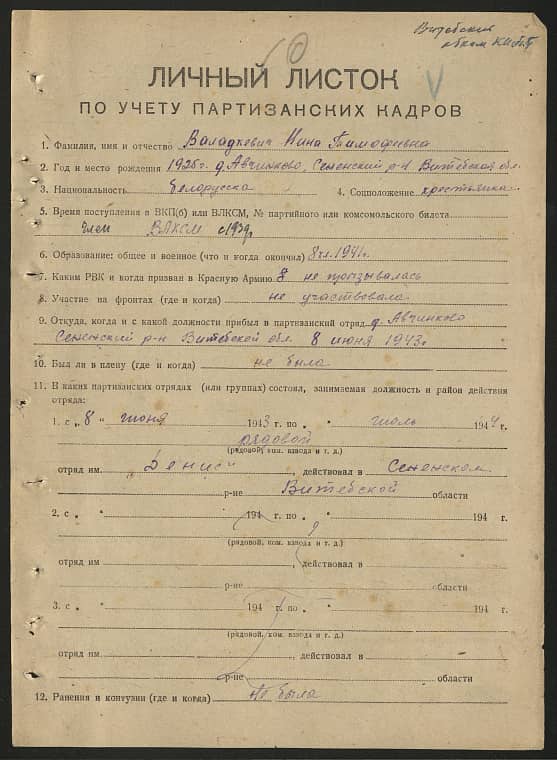 Витебский
обком КП(б)Б
ЛИЧНЫЙ ЛИСТОК
ПО УЧЕТУ ПАРТИЗАНСКИХ КАДРОВ
1. Фамилия, имя и отчество Валадкевич Нина Тимофеевна
2. Год и место рождения 1925 г. д. Авчинково, Сененский р-н Витебская обл.
3. Национальность белоруска 4. Соцположение крестьянка
5. Время поступления в ВКП(б) или ВЛКСМ, № партийного или комсомольского билета
член ВЛКСМ с 1939г.
6. Образование: общее и военное (что и когда окончил) 8 кл. 1941г.
7. Каким РВК и когда призван в Красную Армию не призывалась
8. Участие на фронтах (где и когда) не участвовала
9. Откуда, когда и с какой должности прибыл в партизанский отряд д. Авчинково
Сененский р-н Витебской обл. 8 июня 1943г
10. Был ли в плену (где и когда) не была
11. В каких партизанских отрядах (или группах) состоял, занимаемая должность и район действия
отряда:
1. с „ 8 " июня 1943 г. по " июль 1944 г.
рядовой
(рядовой, ком. взвода и т. д.)
отряд им. "Денис" , действовал в Сененском
р-не Витебской области
2. с " 194 г. по " 194 г.
(рядовой, ком. взвода и т. д.)
отряд им , действовал в
р-не области
3. с " 194 г. по " 194 г.
(рядовой, ком. взвода и т. д.)
отряд им. , действовал в
р-не области
12. Ранения и контузии (где и когда) не была